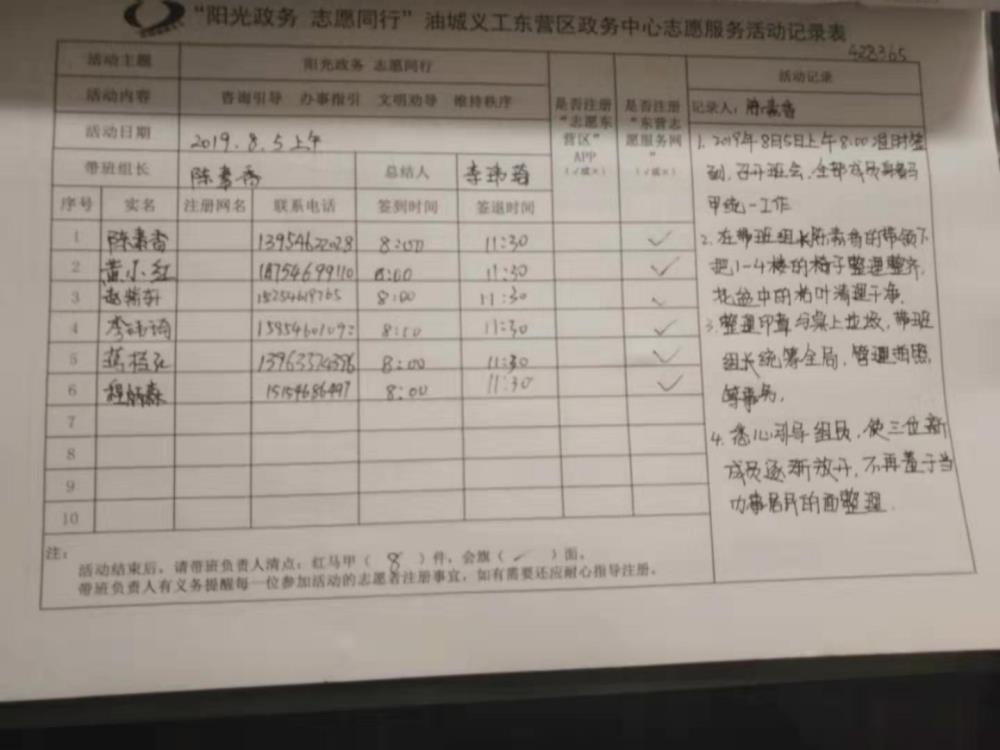 “阳光政务 志愿同行”油城义工东营区政务中心志愿服务活动记录表
428365
活动主题 阳光政务 志愿同行
活动内容 咨询引导 办事指引 文明劝导 维持秩序
活动日期 2019.8.5上午
带班组长 陈素香 总结人
是否注册“志愿东营区”APP（√或×）
是否注册“东营志愿服务网”（√或×）
序号 实名 注册网名 联系电话 签到时间 签退时间
1 陈素香 8:00 11:30 ✓
2 黄小红 18754699110 8:00 11:30 ✓
3 8:00 11:30 ✓
4 8:00 11:30 ✓
5 8:00 11:30 ✓
6 15154686497 8:00 11:30 ✓
7
8
9
10
活动记录
记录人：陈素香
1. 2019年8月5日上午8:00准时签
到，召开班会，全部成员穿马
甲统一工作
2. 在带班组长陈素香的带领下
把1-4楼的椅子整理整齐，
花盆中的枯叶清理干净.
3. 整理印章与桌上垃圾，带班
组长统筹全局，管理
等事务.
4. 悉心引导组员，使三位新
成员逐渐放开，不再羞于当
办事居民的面整理.
注：
活动结束后，请带班负责人清点：红马甲（ 8 ）件，会旗（ ✓ ）面。
带班负责人有义务提醒每一位参加活动的志愿者注册事宜，如有需要还应耐心指导注册。